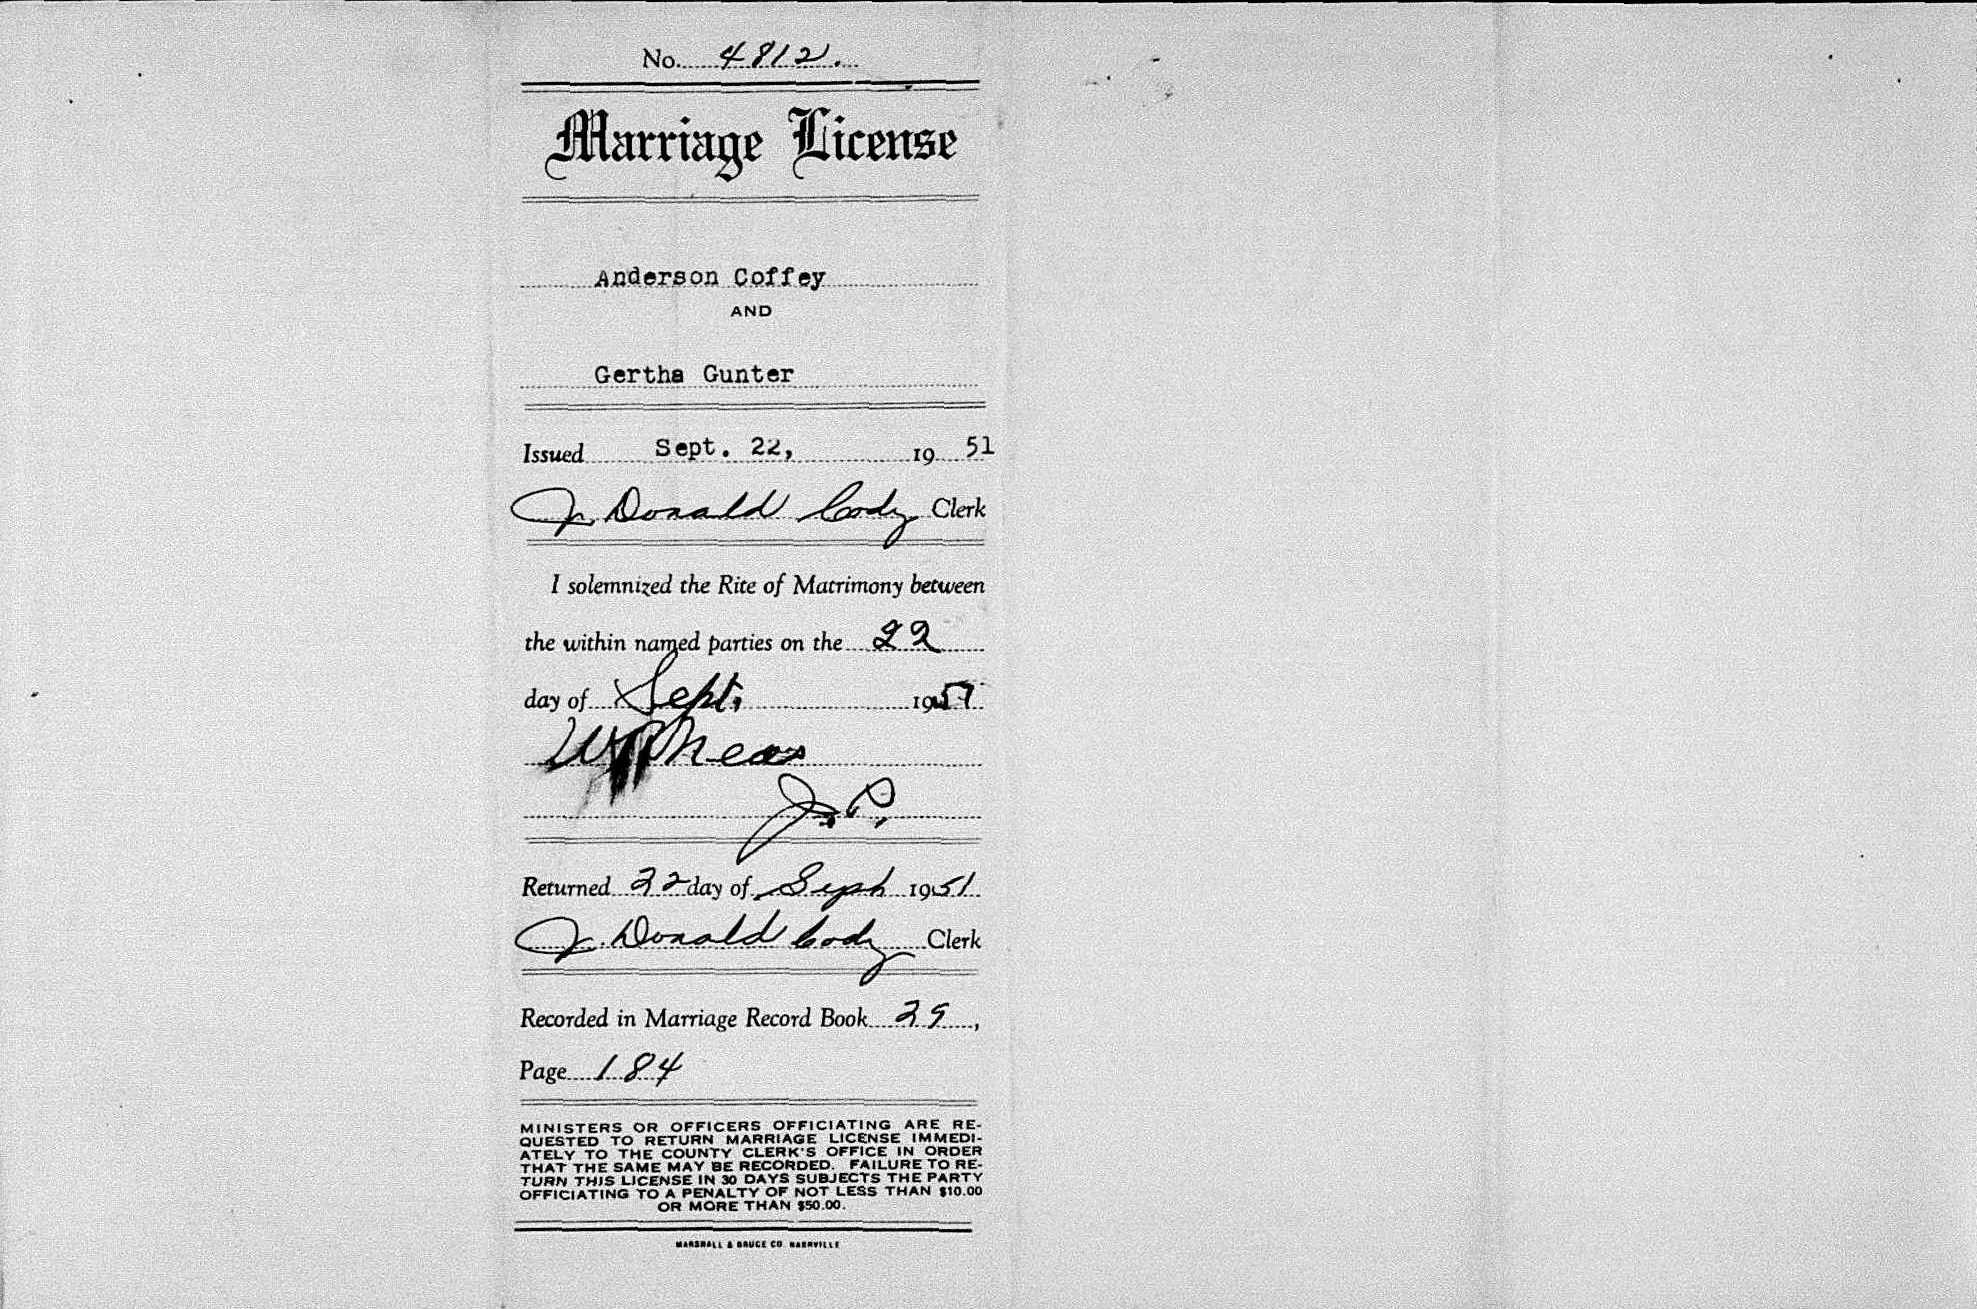 No. 4812.
Marriage License
Anderson Coffey
AND
Gertha Gunter
Issued Sept. 22, 19 51
J. Donald Cody Clerk
I solemnized the Rite of Matrimony between
the within named parties on the 22
day of Sept. 1951
J.P.
Returned 22 day of Sept 1951
J. Donald Cody Clerk
Recorded in Marriage Record Book 25,
Page 184
MINISTERS OR OFFICERS OFFICIATING ARE RE-
QUESTED TO RETURN MARRIAGE LICENSE IMMEDI-
ATELY TO THE COUNTY CLERK'S OFFICE IN ORDER
THAT THE SAME MAY BE RECORDED. FAILURE TO RE-
TURN THIS LICENSE IN 30 DAYS SUBJECTS THE PARTY
OFFICIATING TO A PENALTY OF NOT LESS THAN $10.00
OR MORE THAN $50.00.
MARSHALL & BRUCE CO. NASHVILLE